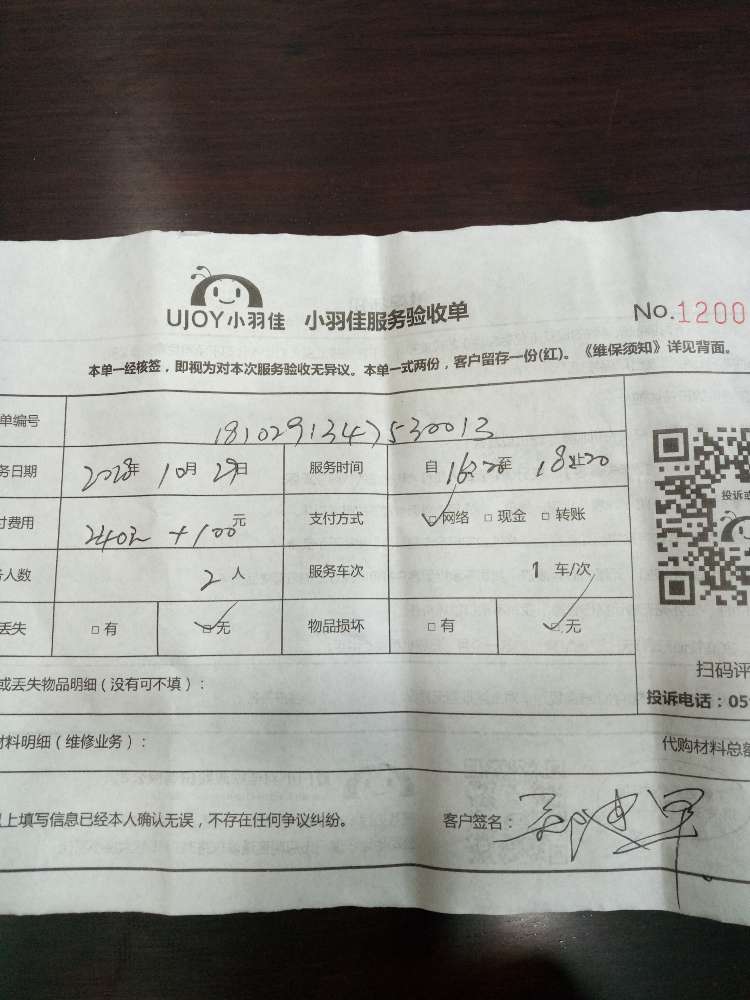 UJOY小羽佳 小羽佳服务验收单 No.1200
本单一经核签，即视为对本次服务验收无异议。本单一式两份，客户留存一份(红)。《维保须知》详见背面。
单编号 1810291347530013
务日期 2018年 10月 29日 服务时间 自 16:20 至 18:20止
付费用 240元 +100元 支付方式 ☑网络 □现金 □转账
人数 2人 服务车次 1 车/次
丢失 □有 ☑无 物品损坏 □有 ☑无
投诉或
扫码评
或丢失物品明细（没有可不填）：
投诉电话：059
材料明细（维修业务）：
代购材料总额
以上填写信息已经本人确认无误，不存在任何争议纠纷。 客户签名：